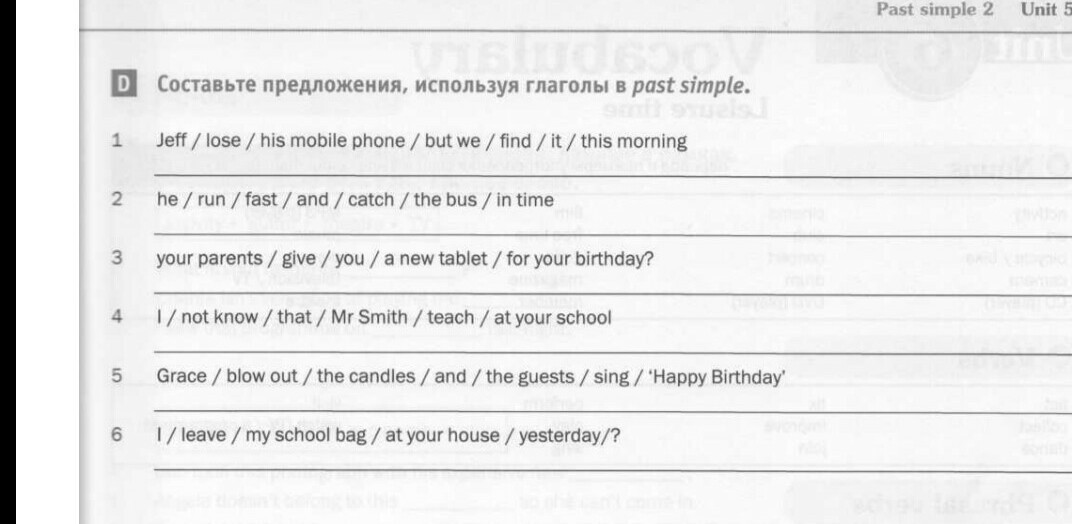 Past simple 2 Unit 5
D Составьте предложения, используя глаголы в past simple.
1 Jeff / lose / his mobile phone / but we / find / it / this morning
2 he / run / fast / and / catch / the bus / in time
3 your parents / give / you / a new tablet / for your birthday?
4 I / not know / that / Mr Smith / teach / at your school
5 Grace / blow out / the candles / and / the guests / sing / ‘Happy Birthday’
6 I / leave / my school bag / at your house / yesterday/?